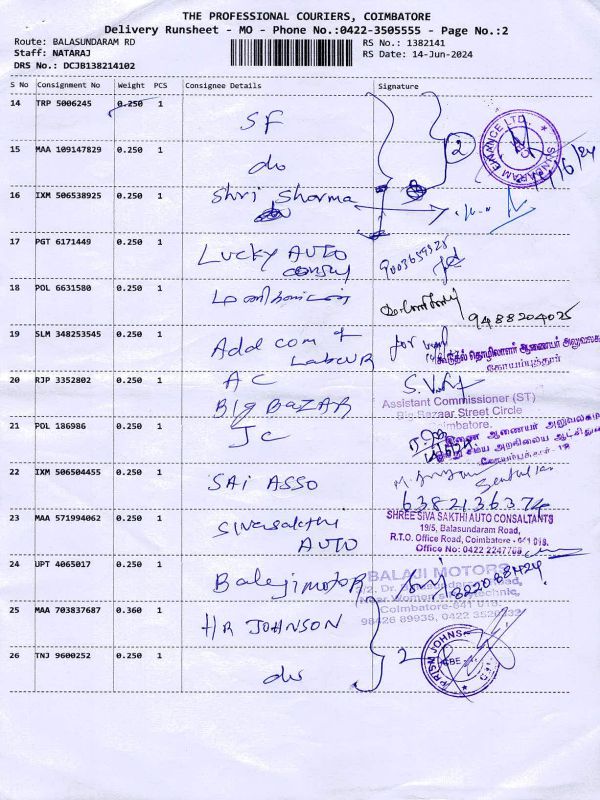 THE PROFESSIONAL COURIERS, COIMBATORE
Delivery Runsheet - MO - Phone No.:0422-3505555 - Page No.:2
Route: BALASUNDARAM RD
RS No.: 1382141
Staff: NATARAJ
RS Date: 14-Jun-2024
DRS No.: DCJB138214102
S No Consignment No Weight PCS Consignee Details Signature
14 TRP 5006245 0.250 1 SF 2
SUNDARAM FINANCE LTD.
15 MAA 109147829 0.250 1 do
16 IXM 506538925 0.250 1 Shri Sharma
17 PGT 6171449 0.250 1 Lucky AUTO
18 POL 6631580 0.250 1 9488204025
19 SLM 348253545 0.250 1 Addl com of
Labour for
கூடுதல் தொழிலாளர் ஆணையர் அலுவலகம்
கோயம்புத்தூர்
20 RJP 3352802 0.250 1 AC
BIG BAZAR
Assistant Commissioner (ST)
Big Bazaar Street Circle
Coimbatore.
21 POL 186986 0.250 1 JC
இணை ஆணையர் அலுவலகம்
22 IXM 506504455 0.250 1 SAI ASSO
6382136374
23 MAA 571994062 0.250 1 Sivasakthi
AUTO
SHREE SIVA SAKTHI AUTO CONSALTANTS
19/5, Balasundaram Road,
R.T.O. Office Road, Coimbatore - 641 018.
Office No: 0422 2247766
24 UPT 4065017 0.250 1 Balaji motor
BALAJI MOTORS
Coimbatore-641 018.
25 MAA 703837687 0.360 1 HR JOHNSON
26 TNJ 9600252 0.250 1 do 2
PRISM JOHNS
CBE